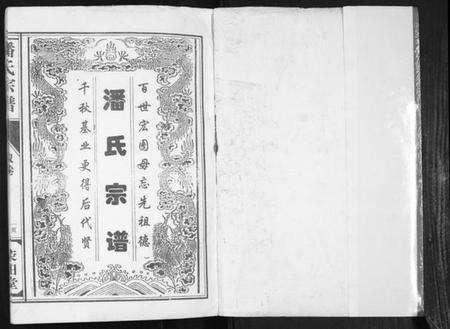 百世宏图毋忘先祖德
潘氏宗谱
千秋基业更得后代贤
潘氏宗谱